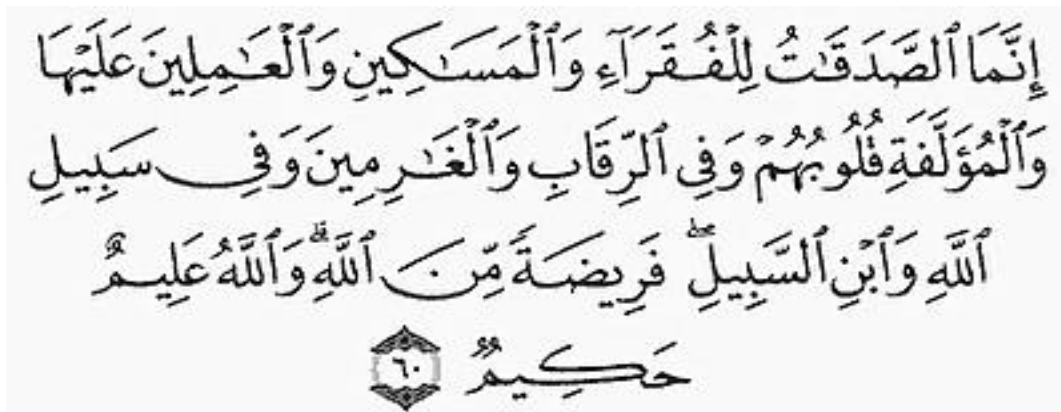 إِنَّمَا ٱلصَّدَقَٰتُ لِلۡفُقَرَآءِ وَٱلۡمَسَٰكِينِ وَٱلۡعَٰمِلِينَ عَلَيۡهَا
وَٱلۡمُؤَلَّفَةِ قُلُوبُهُمۡ وَفِي ٱلرِّقَابِ وَٱلۡغَٰرِمِينَ وَفِي سَبِيلِ
ٱللَّهِ وَٱبۡنِ ٱلسَّبِيلِۖ فَرِيضَةٗ مِّنَ ٱللَّهِۗ وَٱللَّهُ عَلِيمٌ
حَكِيمٞ ٦٠